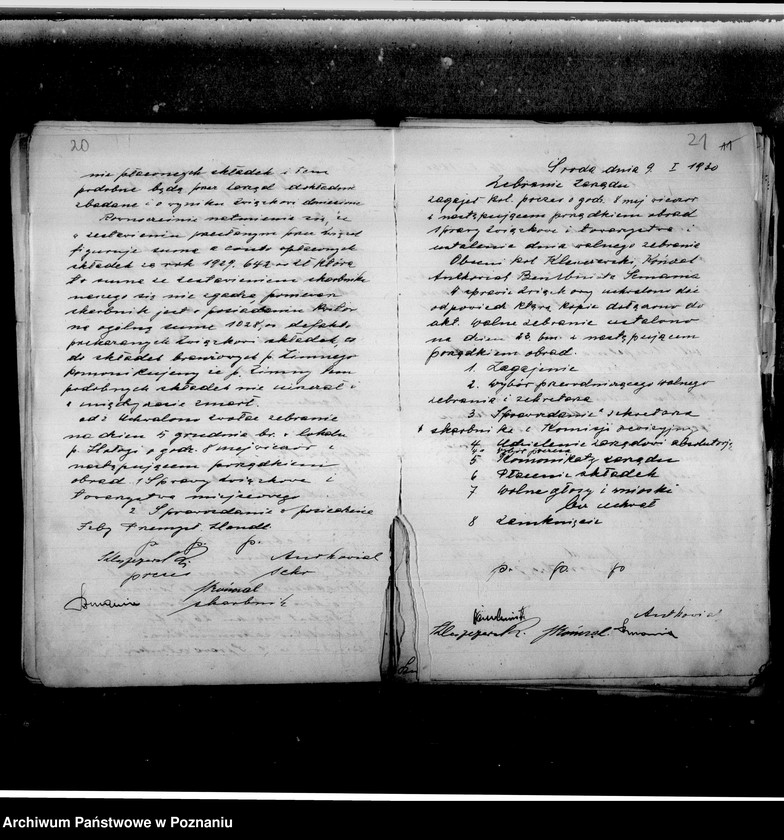 20
nie płaconych składek i tem
podobne będą przez zarząd dokładnie
zbadane i o wyniku związkowi doniesione
Równocześnie nadmienia się, że
w zestawieniu przesłanym przez związek
figuruje suma a conto opłaconych
składek za rok 1929. 642 zł która
to suma ze zestawieniem skarbnika
naszego się nie zgadza ponieważ
skarbnik jest w posiadaniu kwitów
na ogólną sumę 1028
przekazanych związkowi składek, co
do składek p. Zimnego
komunikujemy że p. Zimny tym
podobnych składek nie uiszczał i
w międzyczasie zmarł.
ad 2 Uchwalono zwołać zebranie
na dzień 5 grudnia br. w lokalu
p. o godz. 8 mej wieczór z
następującem porządkiem
obrad 1 Sprawy związkowe i
towarzystwa miejscowego
2 Sprawozdanie z posiedzenia
Izby Przemysł. Handl.
p. p. p.
Antkowiak
prezes sekr
skarbnik
Smania
21 11
Środa dnia 9. I 1930
Zebranie zarządu
zagaja kol. prezes o godz. 8 mej wieczór
z następującem porządkiem obrad
sprawy związkowe i towarzystwa i
ustalenie dnia walnego zebrania
Obecni kol.
Antkowiak Smania
W sprawie związkowej uchwalono dać
odpowiedź którą kopię dołączono do
akt. Walne zebranie ustalono
na dzień 23. bm. z następującym
porządkiem obrad.
1. Zagajenie
2. Wybór przewodniczącego walnego
zebrania i sekretarza
3. Sprawozdanie sekretarza
skarbnika i Komisji rewizyjnej
4. Udzielenie zarządowi absolutorjum
4a Wybór prezesa
5 Komunikaty zarządu
6 Płacenie składek
7 Wolne głosy i wnioski
bez uchwał
8 zamknięcie
p. p. p
Antkowiak
Smania
Archiwum Państwowe w Poznaniu